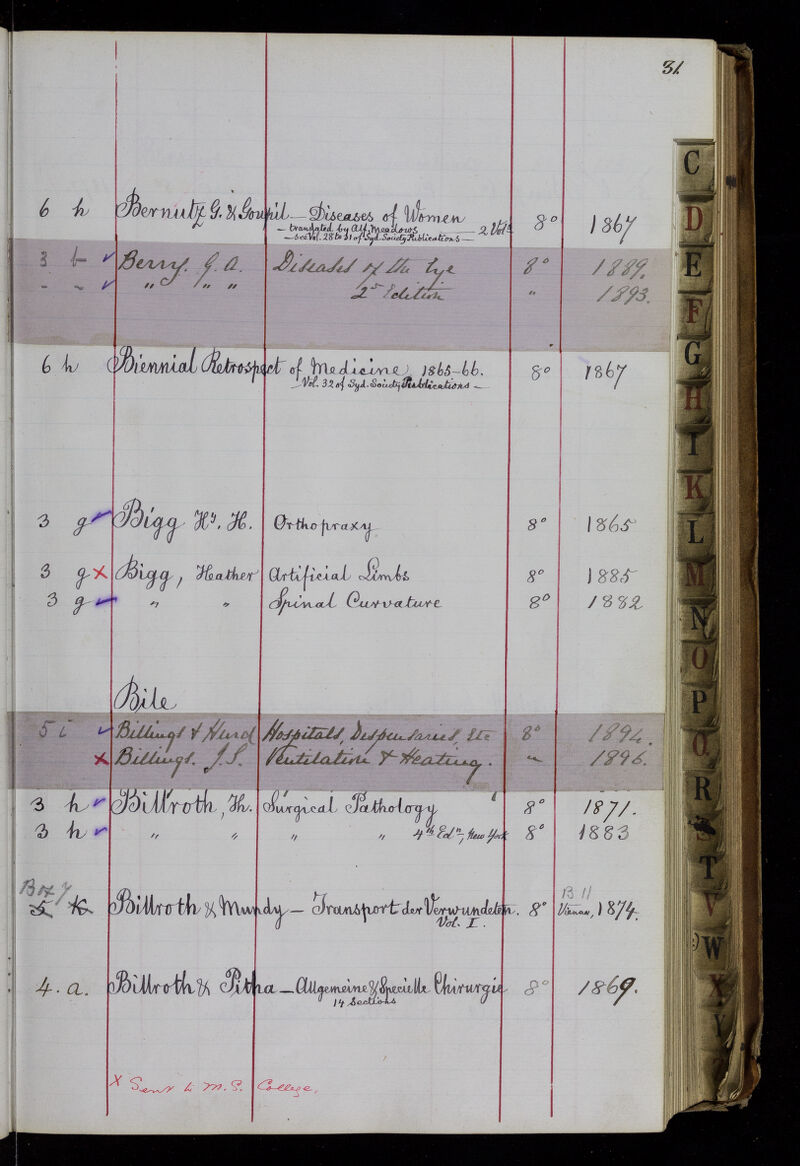 31
6 h Bernutz G. & Goupil — Diseases of Women 8° 1867
— translated by Alf. Meadows — 2 Vols
— see Vol. 28 to 31 of Syd. Society Publications —
3 b Berry. G. A. Diseases of the Eye 8° 1889.
" " " 2nd Edition " 1893.
6 h Biennial Retrospect of Medicine, 1865-66. 8° 1867
— Vol. 32 of Syd. Society Publications —
3 g Bigg Hy. H. Orthopraxy 8° 1865
3 g x Bigg, Heather Artificial Limbs 8° 1885
3 g " " Spinal Curvature 8° 1882
Bile
5 i Billings & Hurd Hospitals, Dispensaries, Etc 8° 1894.
x Billings. J. S. Ventilation & Heating. " 1896.
3 h Billroth, Th. Surgical Pathology 8° 1871.
3 h " " " " 4th Edn, New York 8° 1883
Box 7 B 11
5 k Billroth & Mundy — Transport der Verwundeten. 8° Vienna, 1874.
Vol. I.
4. a. Billroth & Pitha — Allgemeine & Specielle Chirurgie 8° 1869.
14 Sections
x Sent to M. S. College.
C
D
E
F
G
H
I
K
L
M
N
O
P
Q
R
S
T
V
W
X
Y